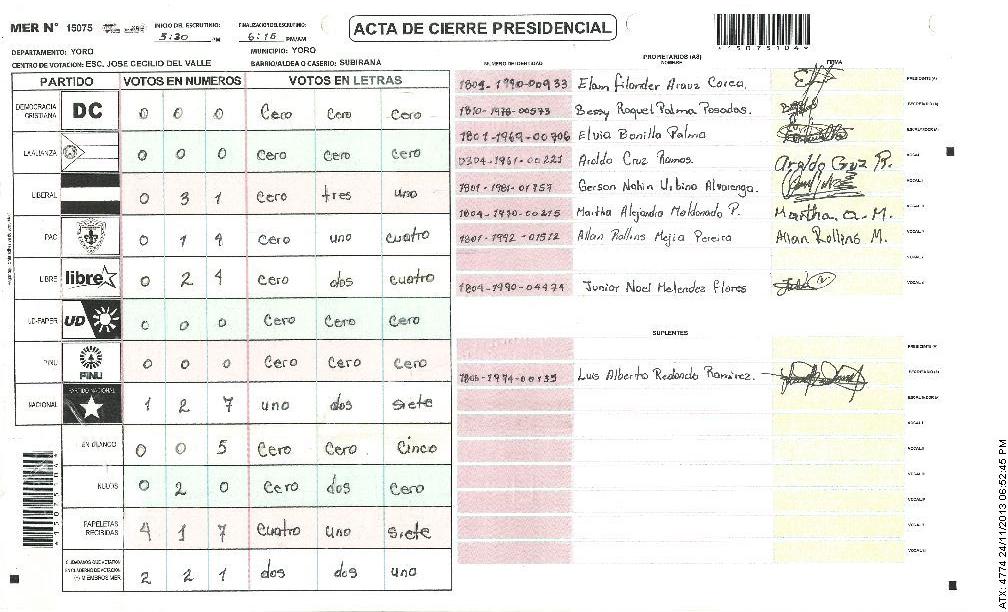 MER N° 15075 INICIO DEL ESCRUTINIO: 5:30 PM FINALIZACION ESCRUTINIO: 6:15 PM/AM ACTA DE CIERRE PRESIDENCIAL
DEPARTAMENTO: YORO MUNICIPIO: YORO
CENTRO DE VOTACION: ESC. JOSE CECILIO DEL VALLE BARRIO/ALDEA O CASERIO: SUBIRANA
PARTIDO VOTOS EN NUMEROS VOTOS EN LETRAS
DEMOCRACIA CRISTIANA DC 0 0 0 Cero Cero Cero
LA ALIANZA 0 0 0 Cero Cero Cero
LIBERAL 0 3 1 Cero tres uno
PAC 0 1 4 Cero uno cuatro
LIBRE libre 0 2 4 Cero dos cuatro
UD-FAPER UD 0 0 0 Cero Cero Cero
PINU PINU 0 0 0 Cero Cero Cero
NACIONAL PARTIDO NACIONAL 1 2 7 uno dos siete
EN BLANCO 0 0 5 Cero Cero Cinco
NULOS 0 2 0 Cero dos Cero
PAPELETAS RECIBIDAS 4 1 7 Cuatro uno siete
CIUDADANOS QUE VOTARON EN CUADERNO DE VOTACION (+) MIEMBROS MER 2 2 1 dos dos uno
NUMERO DE IDENTIDAD PROPIETARIOS (AS) NOMBRE FIRMA
Elam Filander Arauz Corea. PRESIDENTE (A)
1810-1978-00573 Bessy Raquel Palma Posadas. SECRETARIO (A)
1801-1969-00706 Elvia Bonilla Palma ESCRUTADOR (A)
Aroldo Cruz Ramos. Aroldo Cruz R.
1801-1981-01757 Gerson Nahin Urbina Alvarenga.
Martha Alejandra Maldonado P. Martha. a. M.
1801-1992-01512 Allan Rollins Mejia Pereira Allan Rollins M.
1804-1990-04474 Junior Noel Melendez flores
SUPLENTES
PRESIDENTE (A)
Luis Alberto Redondo Ramirez. SECRETARIO (A)
ESCRUTADOR (A)
VOCAL I
VOCAL II
VOCAL III
VOCAL IV
VOCAL V
ATX: 4774 24/11/2013 06:52:45 PM